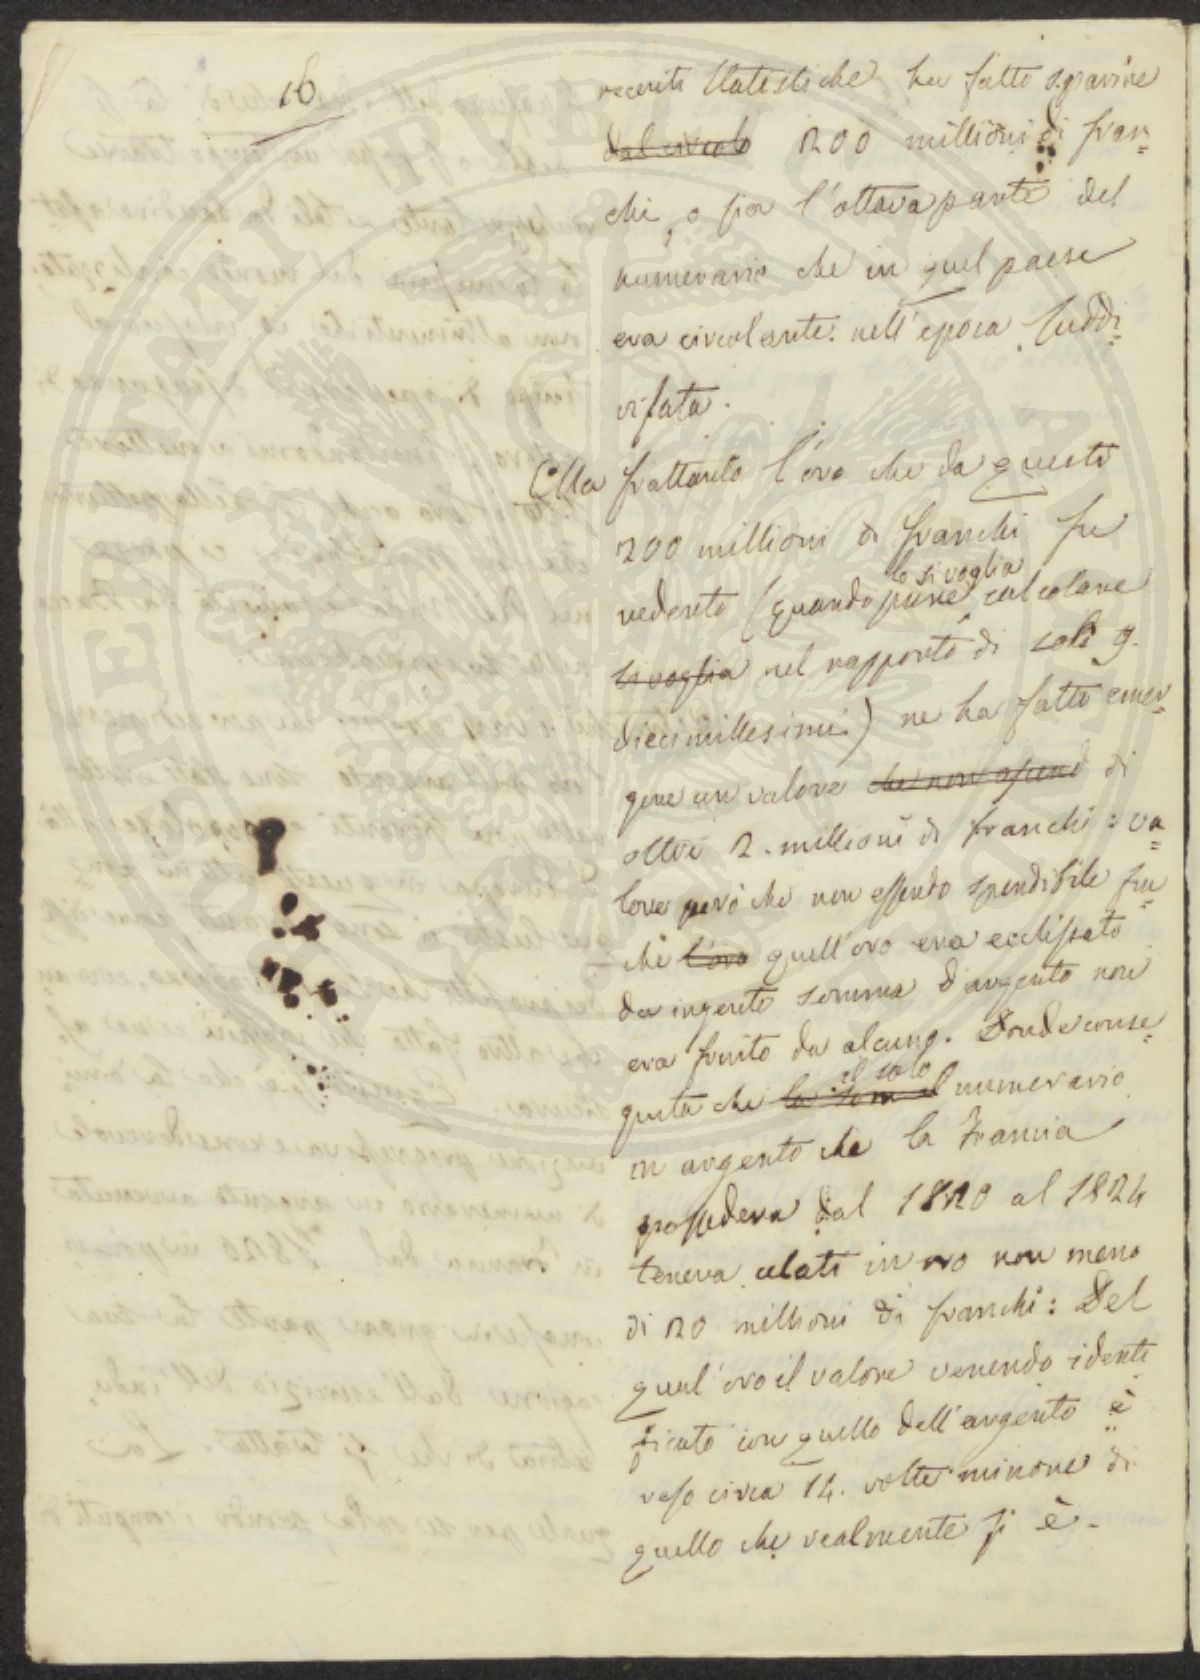 16
recenti statistiche ha fatto sparire
dal circolo 200 millioni di fran=
chi, o sia l'ottava parte del
numerario che in quel paese
era circolante nell'epoca suddi=
visata.
Ma frattanto l'oro che da questi
200 millioni di franchi fu
redento (quando pure lo si voglia calcolare
si voglia nel rapporto di soli 9.
diecimillesimi) ne ha fatto emer=
gere un valore che non ascend di
oltre 2. millioni di franchi: va=
lore però che non essendo spendibile fin=
chè l'oro quell'oro era ecclissato
da ingente somma d'argento non
era fruito da alcuno. Donde conse=
guita che la som il solo numerario
in argento che la Francia
possedeva dal 1820 al 1824
teneva celati in oro non meno
di 20 millioni di franchi: Del
qual'oro il valore venendo identi
ficato con quello dell'argento è
reso circa 14. volte minore di
quello che realmente si è.